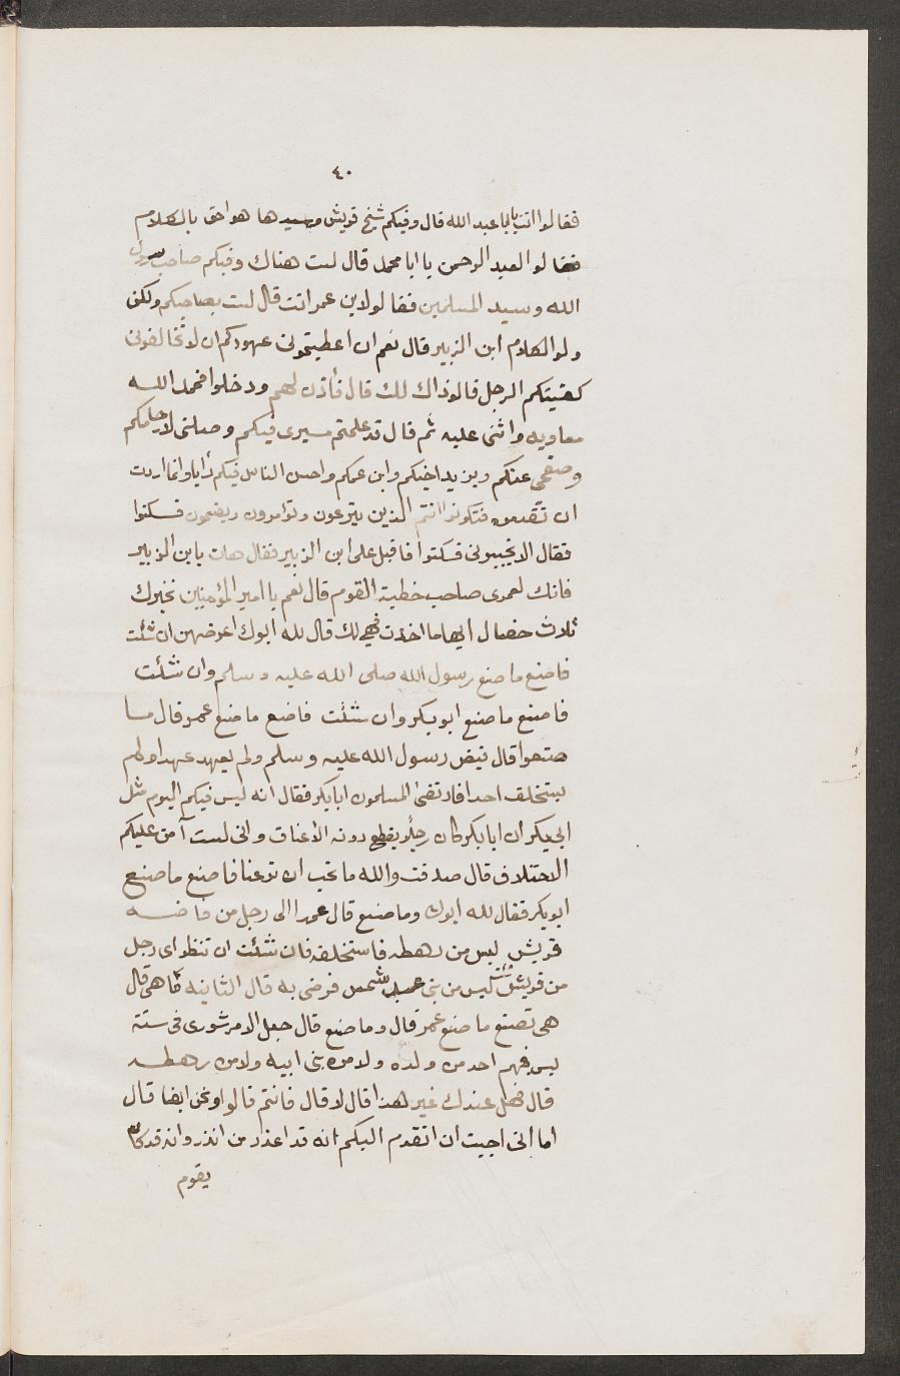 ٤٠
فقالوا انت يا ابا عبد الله قال وفيكم شيخ قريش وسيدها هو احق بالكلام
فقالوا لعبد الرحمن يا ابا محمد قال لست هناك وفيكم صاحب رسول
الله وسيد المسلمين فقالوا لابن عمر انت قال لست بصاحبكم ولكن
ولوا الكلام ابن الزبير قال نعم ان اعطيتموني عهودكم ان لا تخالفوني
كفيتكم الرجل قالوا ذاك لك قال فأذن لهم ودخلوا فحمد الله
معاويه واثنى عليه ثم قال قد علمتم مسيري فيكم وصلتي لارحامكم
وصفحي عنكم ويزيد اخيكم وابن عمكم واحسن الناس فيكم رأيا وانما اردت
ان تقدموه فتكونوا انتم الذين ينزعون وتوامرون ويقسمون فسكتوا
فقال الا تجيبوني فسكتوا فاقبل على ابن الزبير فقال هات يا بن الزبير
فانك لعمري صاحب خطبة القوم قال نعم يا امير المؤمنين نخيرك
ثلاث خصال ايها ما اخذت فهي لك قال لله ابوك اعرضهن ان شئت
فاصنع ما صنع رسول الله صلى الله عليه وسلم وان شئت
فاصنع ما صنع ابو بكر وان شئت فاصنع ما صنع عمر قال ما
صنعوا قال قبض رسول الله عليه وسلم ولم يعهد عهدا ولم
يستخلف احدا فارتضى المسلمون ابابكر فقال انه ليس فيكم اليوم مثل
ابي بكر ان ابا بكر كان رجلا يقطع دونه الاعناق واني لست آمن عليكم
الاختلاف قال صدقت والله ما نحب ان تدعنا فاصنع ما صنع
ابو بكر فقال لله ابوك وما صنع قال عمد الى رجل من قاضية
قريش ليس من رهطه فاستخلفه فان شئت ان تنظر اي رجل
من قريش شئت ليس من بني عبد شمس فرضى به قال الثانيه ما هي قال
هي تصنع ما صنع عمر قال وما صنع قال جعل الامر شورى في ستة
ليس فيهم احد من ولده ولا من بني ابيه ولا من رهطه
قال فهل عندك غير هذا قال لا قال فانتم قالوا ونحن ايضا قال
اما اني احببت ان اتقدم اليكم انه قد اعذر من انذر وانه قد كان
يقوم